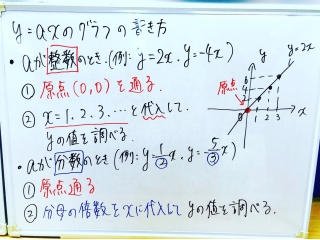 y=axのグラフの書き方
・aが整数のとき(例: y=2x, y=-4x)
① 原点(0,0)を通る
② x=1.2.3.…と代入して
yの値を調べる.
・aが分数のとき(例: y=1/2x, y=5/3x)
① 原点通る
② 分母の倍数をxに代入して yの値を調べる.
y
y=2x
6
4
2
原点
0
1 2 3
x